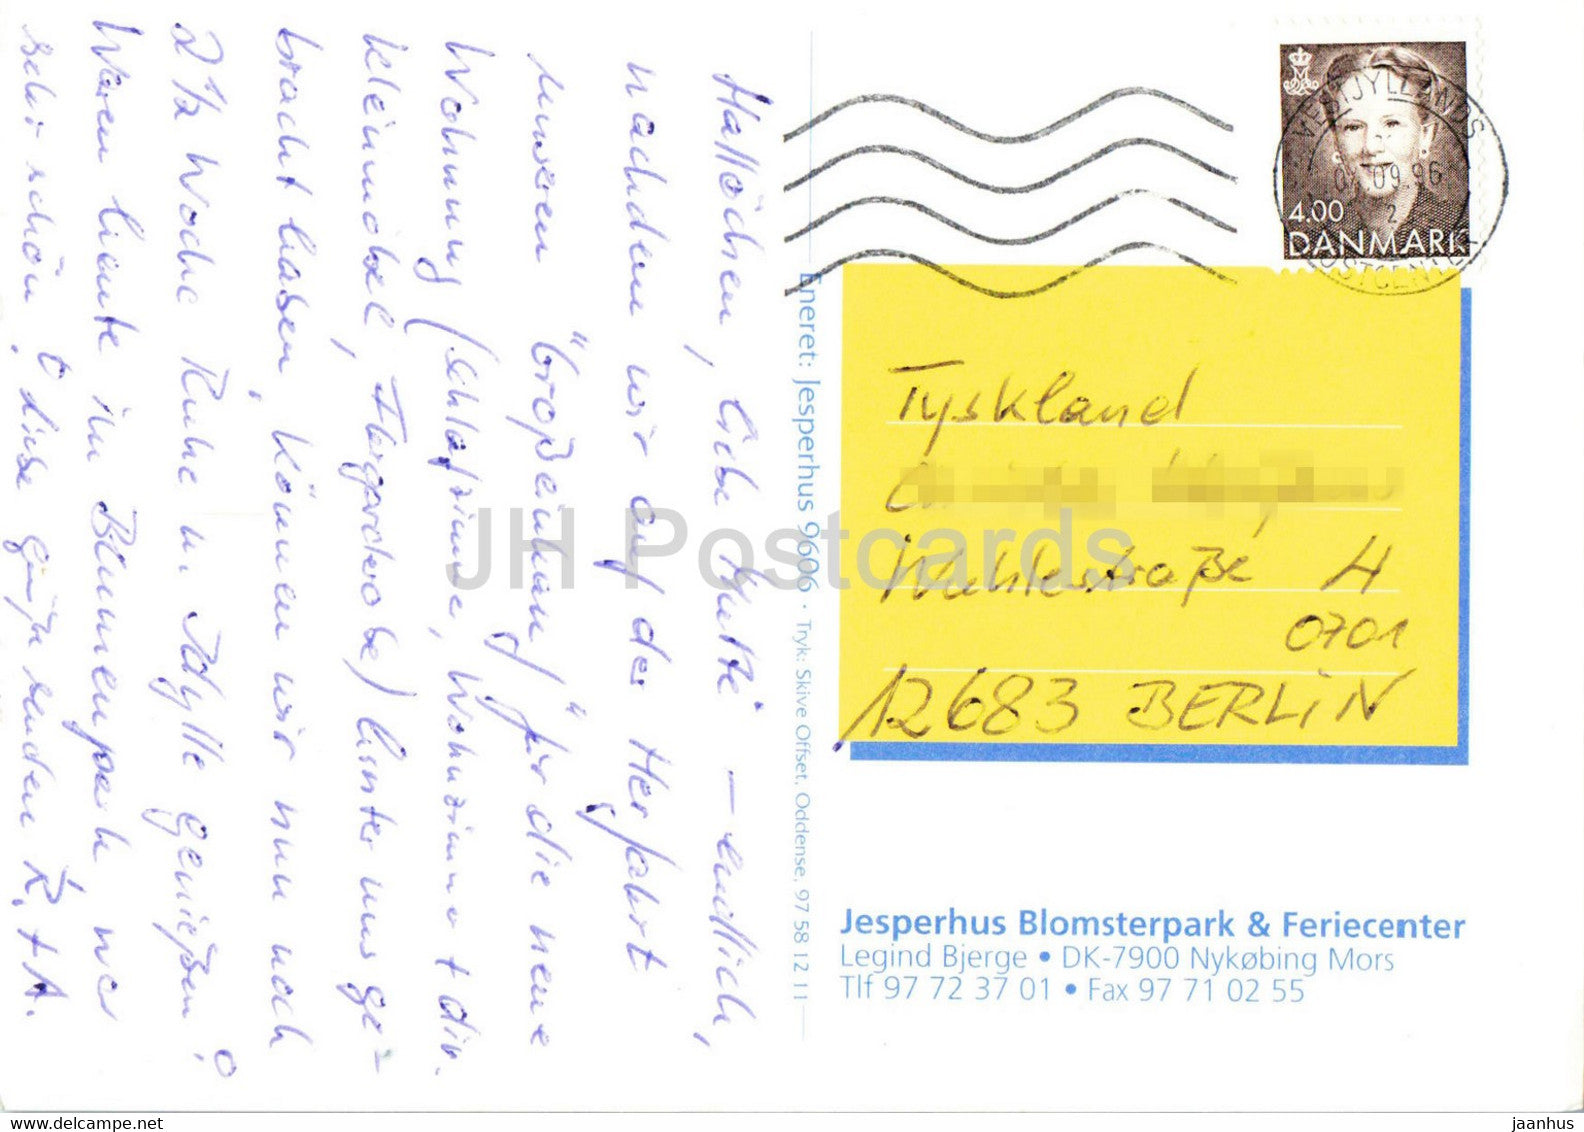 Hallöchen, liebe Mutti – endlich,
nachdem wir auf der Herfahrt
unseren "Großeinkauf" für die neue
Wohnung (Schlafzimmer, Wohnzimmer + div.
Kleinmöbel, Flurgarderobe) hinter uns ge-
bracht haben, können wir nun noch
2 1/2 Woche Ruhe u. Idylle genießen!
Waren heute im Blumenpark, war
sehr schön. Liebe Grüße senden R. + A.
Eneret: Jesperhus 9606 · Tryk: Skive Offset, Oddense, 97 58 12 11
4.00
DANMARK
VESTJYLLANDS
09.96
2
POSTCENTER
Tyskland
Wuhlestraße 4
0701
12683 BERLIN
Jesperhus Blomsterpark & Feriecenter
Legind Bjerge • DK-7900 Nykøbing Mors
Tlf 97 72 37 01 • Fax 97 71 02 55
JH Postcards
delcampe.net
jaanhus